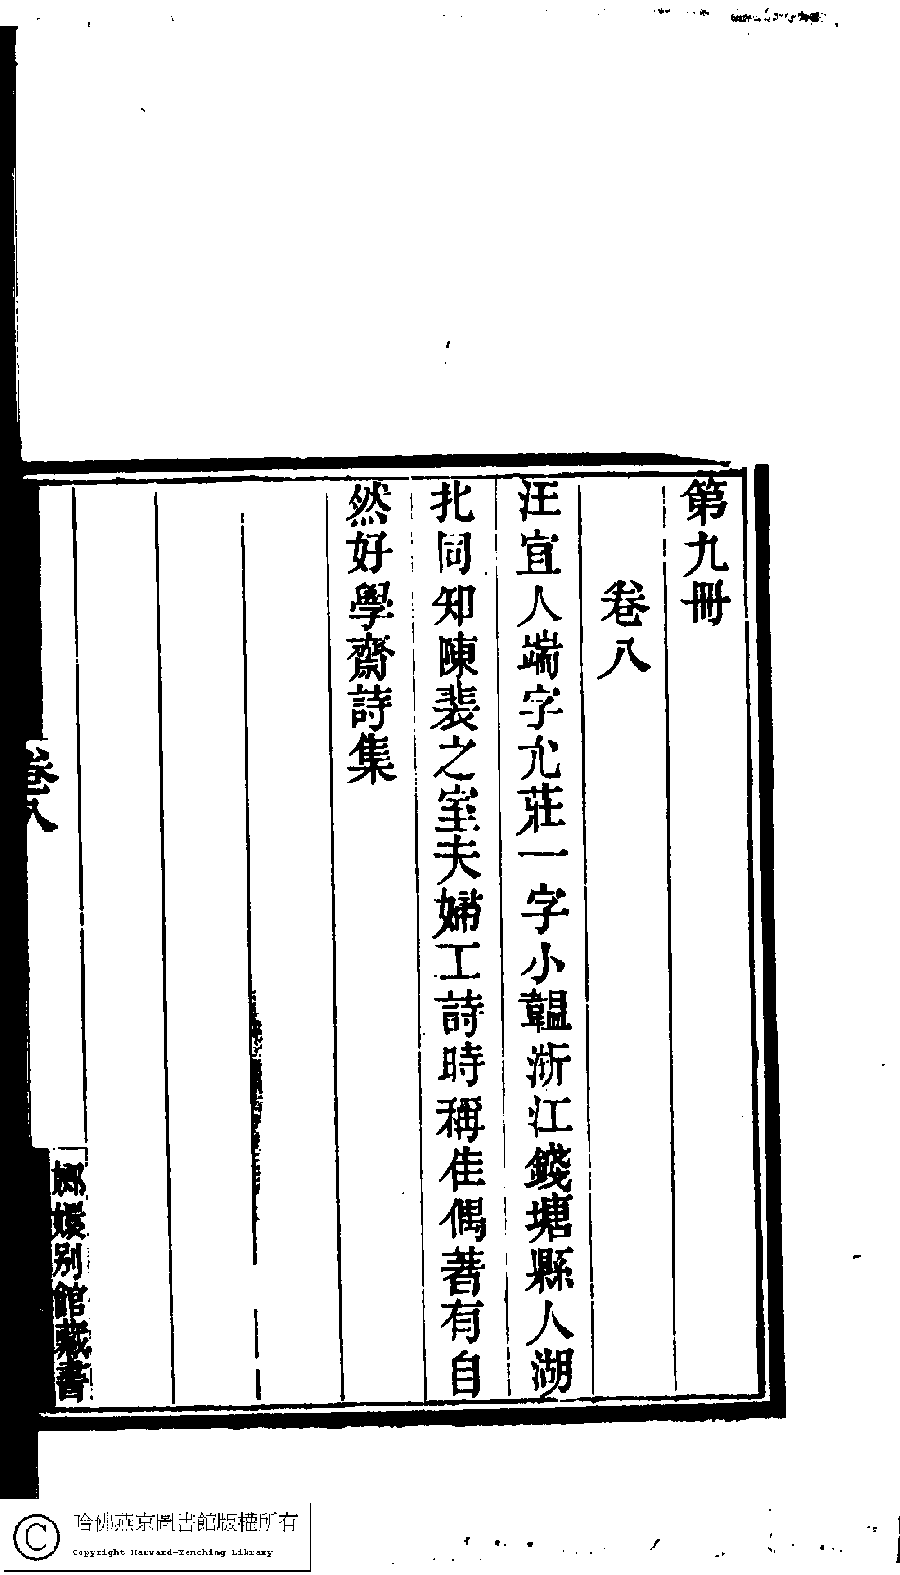 第九冊
卷八
汪宜人端字允莊一字小韞浙江錢塘縣人湖
北同知陳裴之室夫婦工詩時稱佳偶著有自
然好學齋詩集
卷八
嫏嬛别館藏書
哈佛燕京圖書館版權所有
Copyright Harvard-Yenching Library